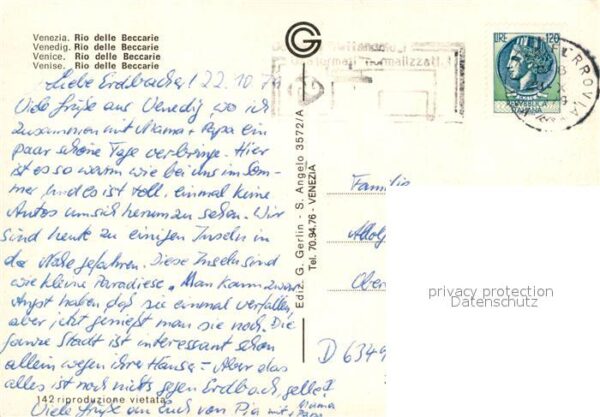 Venezia. Rio delle Beccarie
Venedig. Rio delle Beccarie
Venice. Rio delle Beccarie
Venise. Rio delle Beccarie
Liebe Erdbacher! 22.10.79
Viele Grüße aus Venedig, wo ich
zusammen mit Mama + Papa ein
paar schöne Tage verbringe. Hier
ist es so warm wie bei uns im Som-
mer und es ist toll, einmal keine
Autos um sich herum zu sehen. Wir
sind heute zu einigen Inseln in
der Nähe gefahren. Diese Inseln sind
wie kleine Paradiese. Man kann zwar
Angst haben daß sie einmal verfallen,
aber jetzt genießt man sie noch. Die
ganze Stadt ist interessant schon
allein wegen ihrer Häuser – Aber das
alles ist noch nichts gegen Erdbach, gelle?
Viele Grüße an Euch von Pia mit Mama
+ Papa
142 riproduzione vietata
G
Ediz. G. Gerlin - S. Angelo 3572/A
Tel. 70.94.76 - VENEZIA
LIRE 120
REPUBBLICA
ITALIANA
FERROVIA
normalizzati
Familie
Adolf
Ober
D 6349
privacy protection
Datenschutz